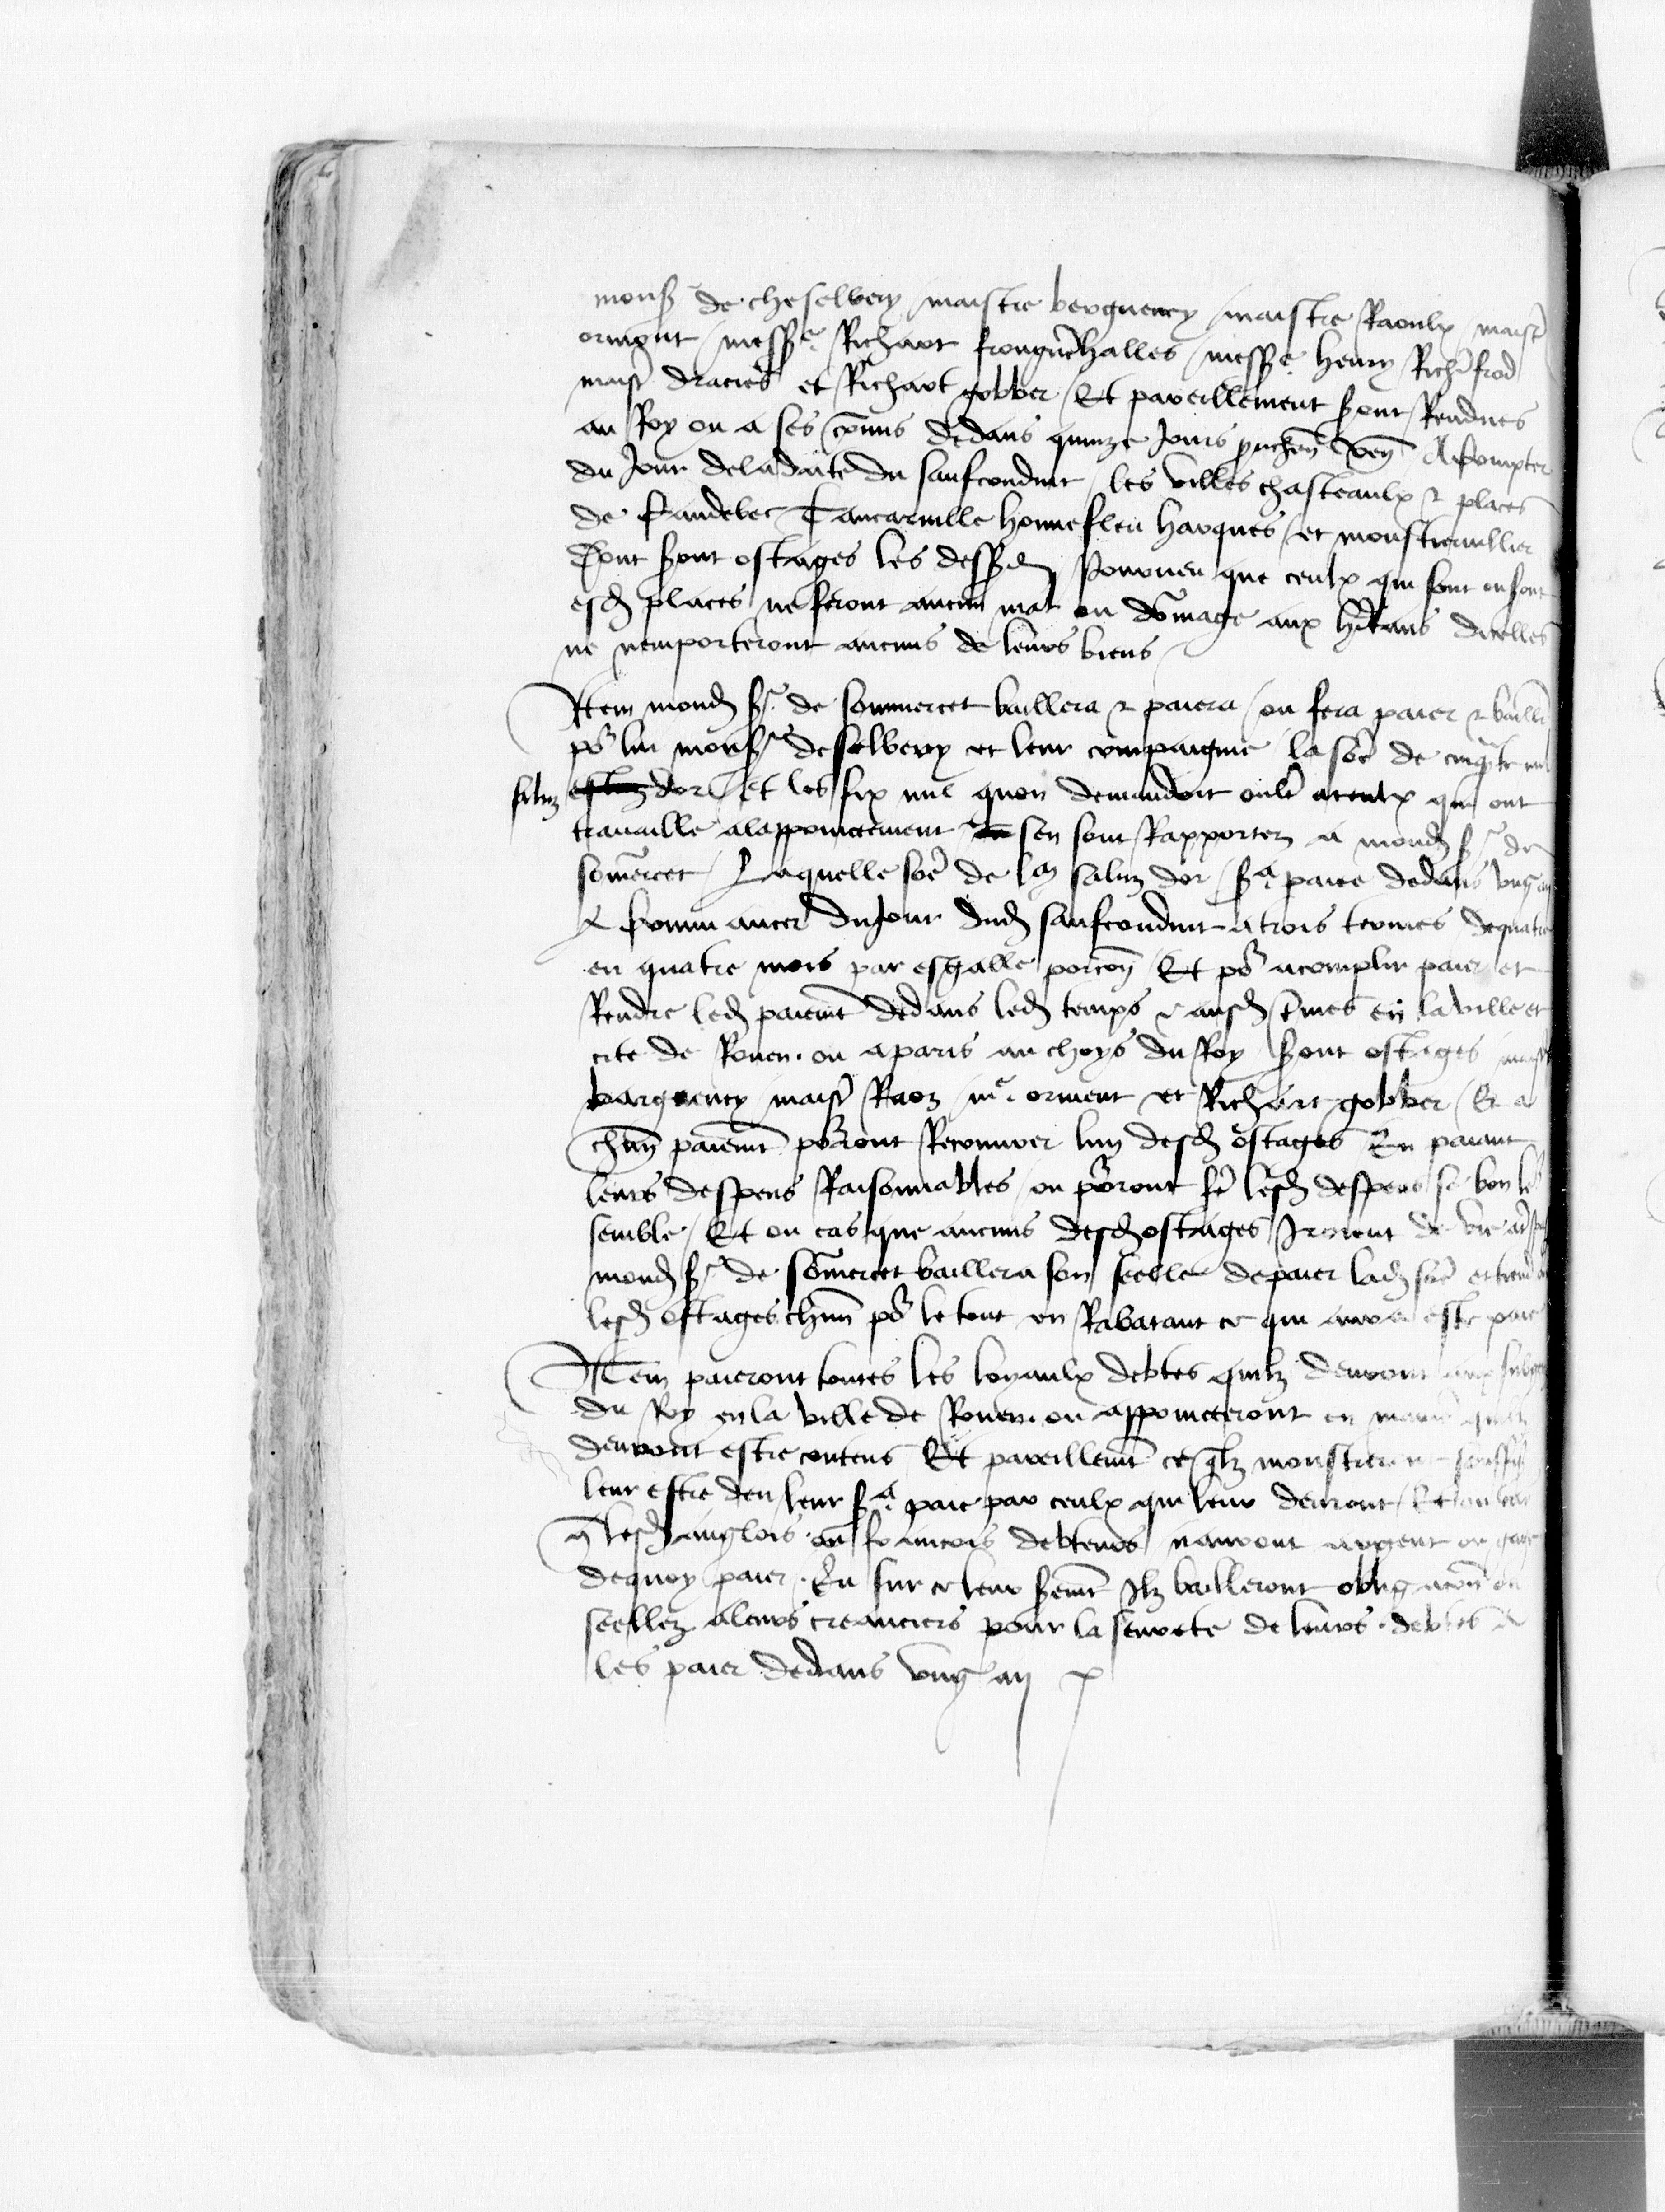 monsr de cheselbery maistre berguency maistre Raoulx maistr
ormont messre Richart frongnehalles messre henry Richefrod
maistr dracies et Richart gobber Et pareillement seront Rendues
au Roy ou a ses commis dedans quinze jours prouchen ven A compter
du jour de la date du saufconduit les villes chasteaulx & places
de Caudebec Tancarville honnefleu harques et monstiervillier
Dont seront ostages les dessusd pourveu que ceulx qui sont ou seront
esd places ne feront aucun mal ou domage aux hitans dicelles
ne nemporteront aucuns de leurs biens
Item mond sr de sommercet baillera & paiera ou fera paier & baillr
por lui monsr deselbery et leur compaignie la some de cinqte mil
saluz dor Et les six mil quon demandoit oultr a ceulx qui ont
travaille alappoinctement sen sont Rapportez a mond sr de
somercet Laquelle some de Lm saluz dor sera paiee dedans ung an
A commancer du jour dud saufconduit a trois termes de quatre
en quatre mois par esgalle porcon Et por acomplir paier et
Rendre led paiemt dedans led temps & ausd termes en la ville et
cite de Rouen ou a paris au choys du Roy seront ostages maistr
barquency maistr Raoz me orment et Richart gobber Et a
chun paiemt porront Recouvrer lun desd ostages En paiant
leurs despens Raisonnables ou porront fe lesd despens se bon ler
semble Et ou cas que aucuns desd ostages Iroient de vie a
mond sr de somercet baillera son seelle de paier lad some et
lesd ostages chun por le tout en Rabatant ce qui aura este paie
Item paieront toutes les loyaulx debtes quilz devront aux
du Roy en la ville de Rouen ou appoincteront en manr quilz
devront estre contens Et pareillemt ce qlz monstreront
leur estre deu leur sera paie par ceulx qui leur devront Et au cas
q lesd anglois ou francois debteurs nauront argent ou gage
dequoy paier En sur ce leur semt Ilz bailleront obligacon ou
seellez a leurs creanciers pour la seurete de leurs debtes a
les paier dedans ung an